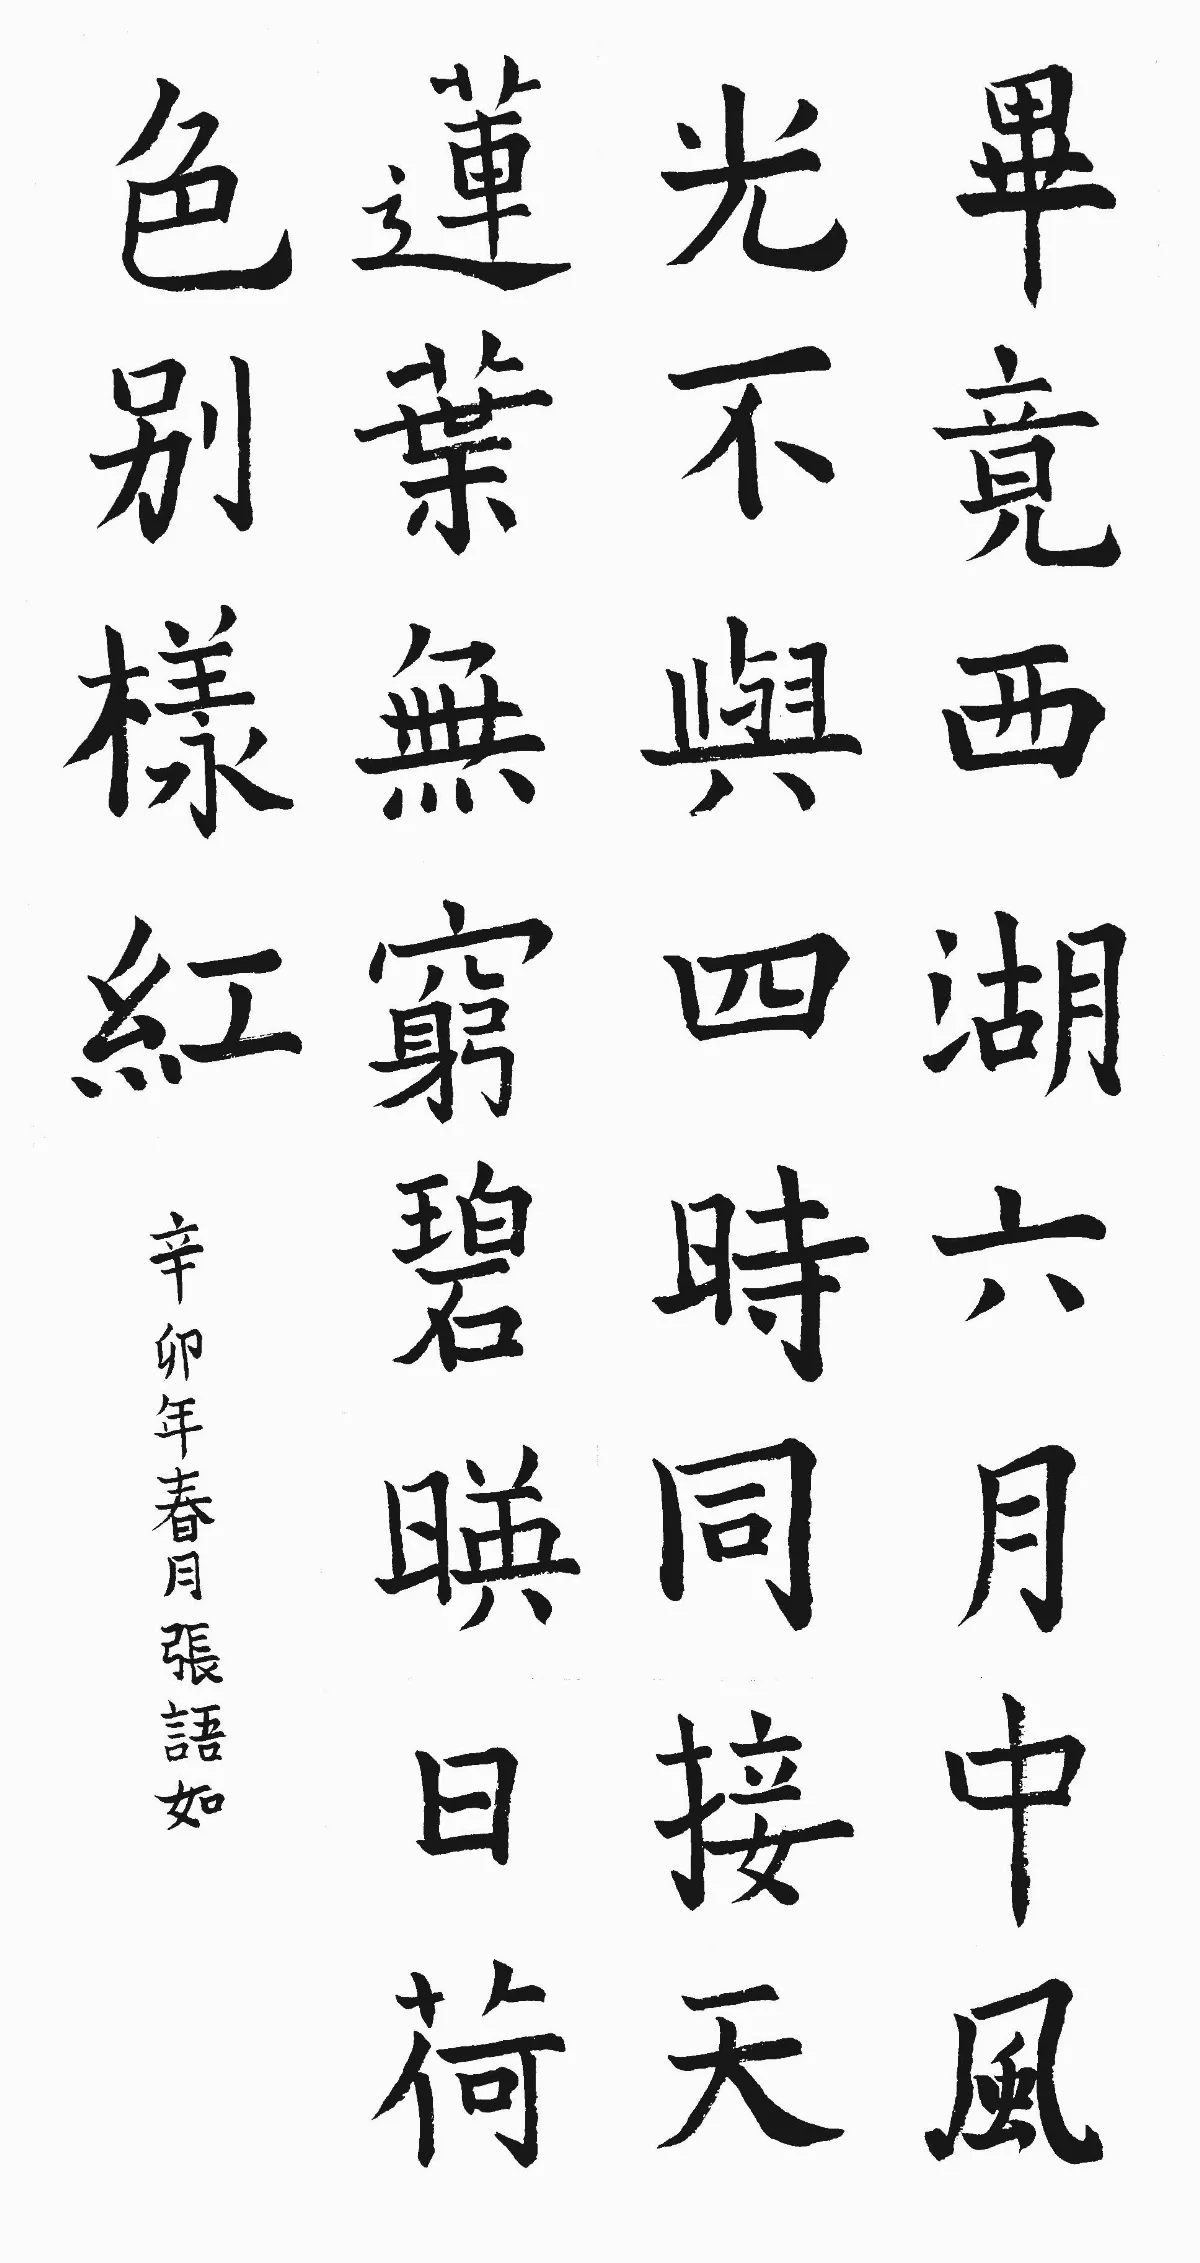 畢竟西湖六月中風
光不與四時同接天
蓮葉無窮碧暎日荷
色别樣紅
辛卯年春月張語如